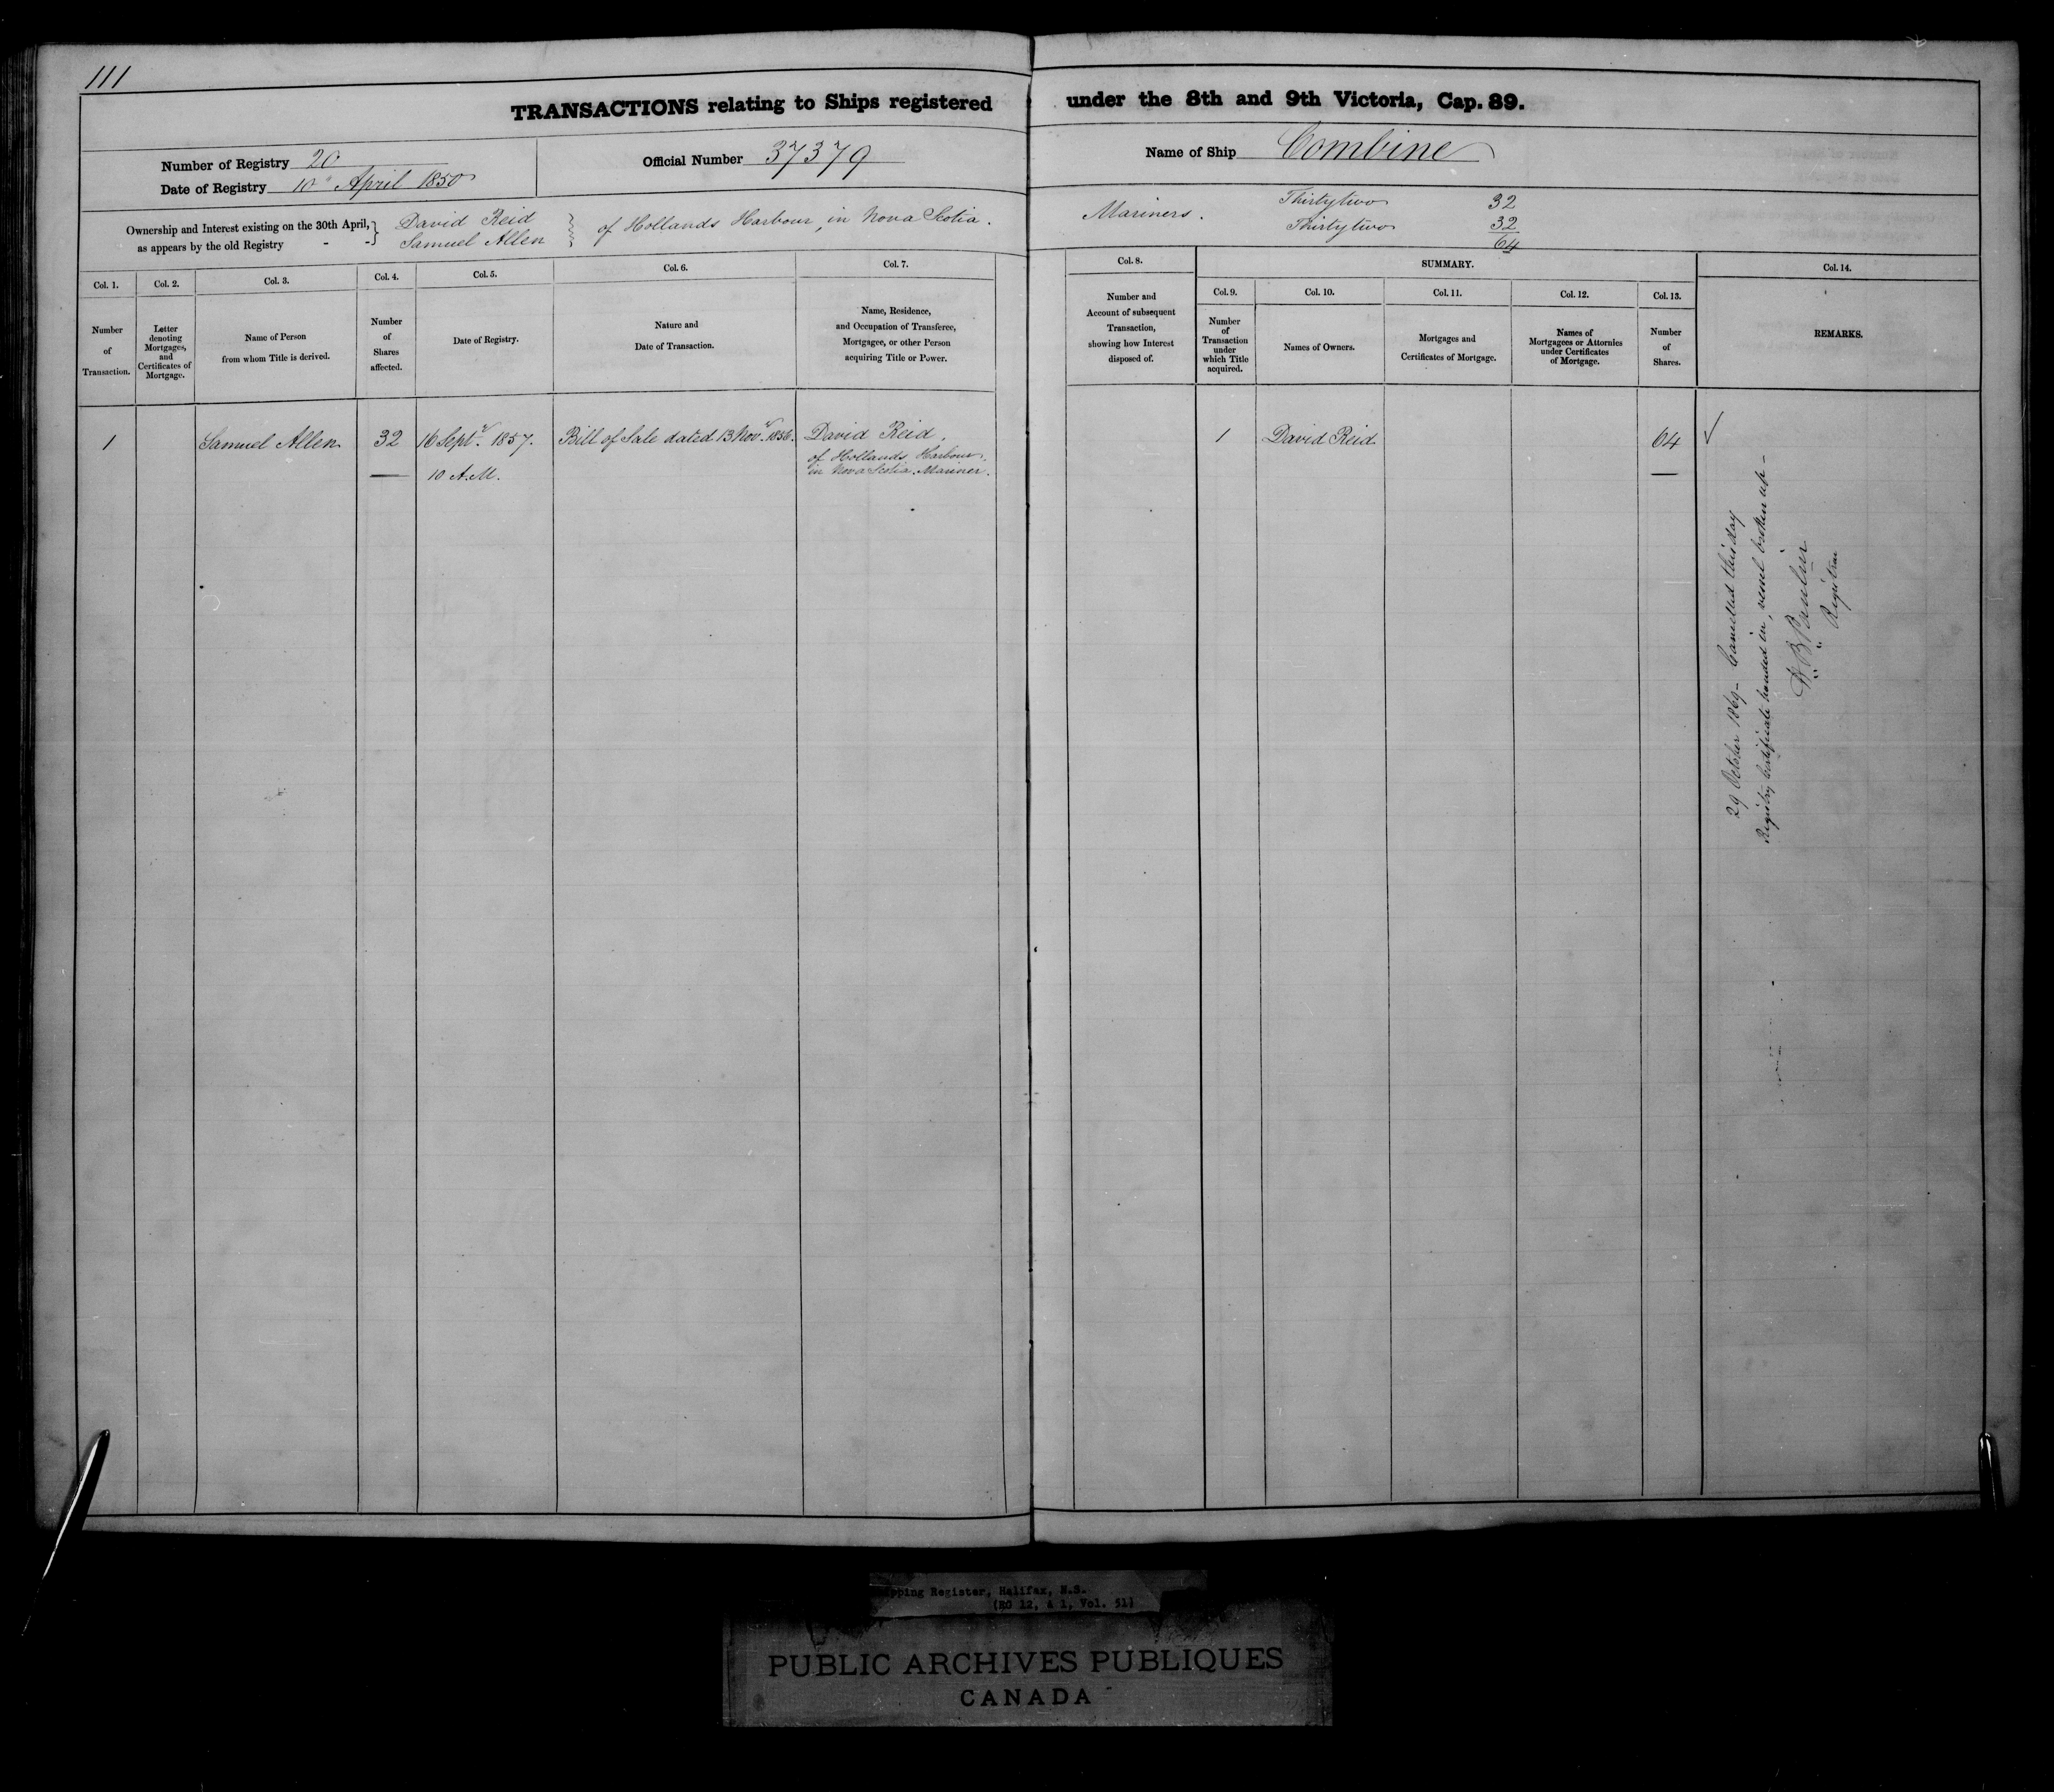 111
TRANSACTIONS relating to Ships registered under the 8th and 9th Victoria, Cap. 89.
Number of Registry 20
Date of Registry 10 April 1850
Official Number 37379
Name of Ship Combine
Ownership and Interest existing on the 30th April,
as appears by the old Registry - -
David Reid
Samuel Allen
of Hollands Harbour, in Nova Scotia.
Mariners.
Thirtytwo 32
Thirtytwo 32
64
Col. 1.
Number
of
Transaction.
Col. 2.
Letter
denoting
Mortgages,
and
Certificates of
Mortgage.
Col. 3.
Name of Person
from whom Title is derived.
Col. 4.
Number
of
Shares
affected.
Col. 5.
Date of Registry.
Col. 6.
Nature and
Date of Transaction.
Col. 7.
Name, Residence,
and Occupation of Transferee,
Mortgagee, or other Person
acquiring Title or Power.
Col. 8.
Number and
Account of subsequent
Transaction,
showing how Interest
disposed of.
SUMMARY.
Col. 9.
Number
of
Transaction
under
which Title
acquired.
Col. 10.
Names of Owners.
Col. 11.
Mortgages and
Certificates of Mortgage.
Col. 12.
Names of
Mortgagees or Attornies
under Certificates
of Mortgage.
Col. 13.
Number
of
Shares.
Col. 14.
REMARKS.
1
Samuel Allen
32
16 Sept.r 1857.
10 A.M.
Bill of Sale dated 13 Nov.r 1856.
David Reid,
of Hollands Harbour,
in Nova Scotia. Mariner.
1
David Reid
64
29 October 1869 - Cancelled this day
Registry Certificate handed in, vessel broken up -
Registrar
pping Register, Halifax, N.S.
(RG 12, A 1, Vol. 51)
PUBLIC ARCHIVES PUBLIQUES
CANADA